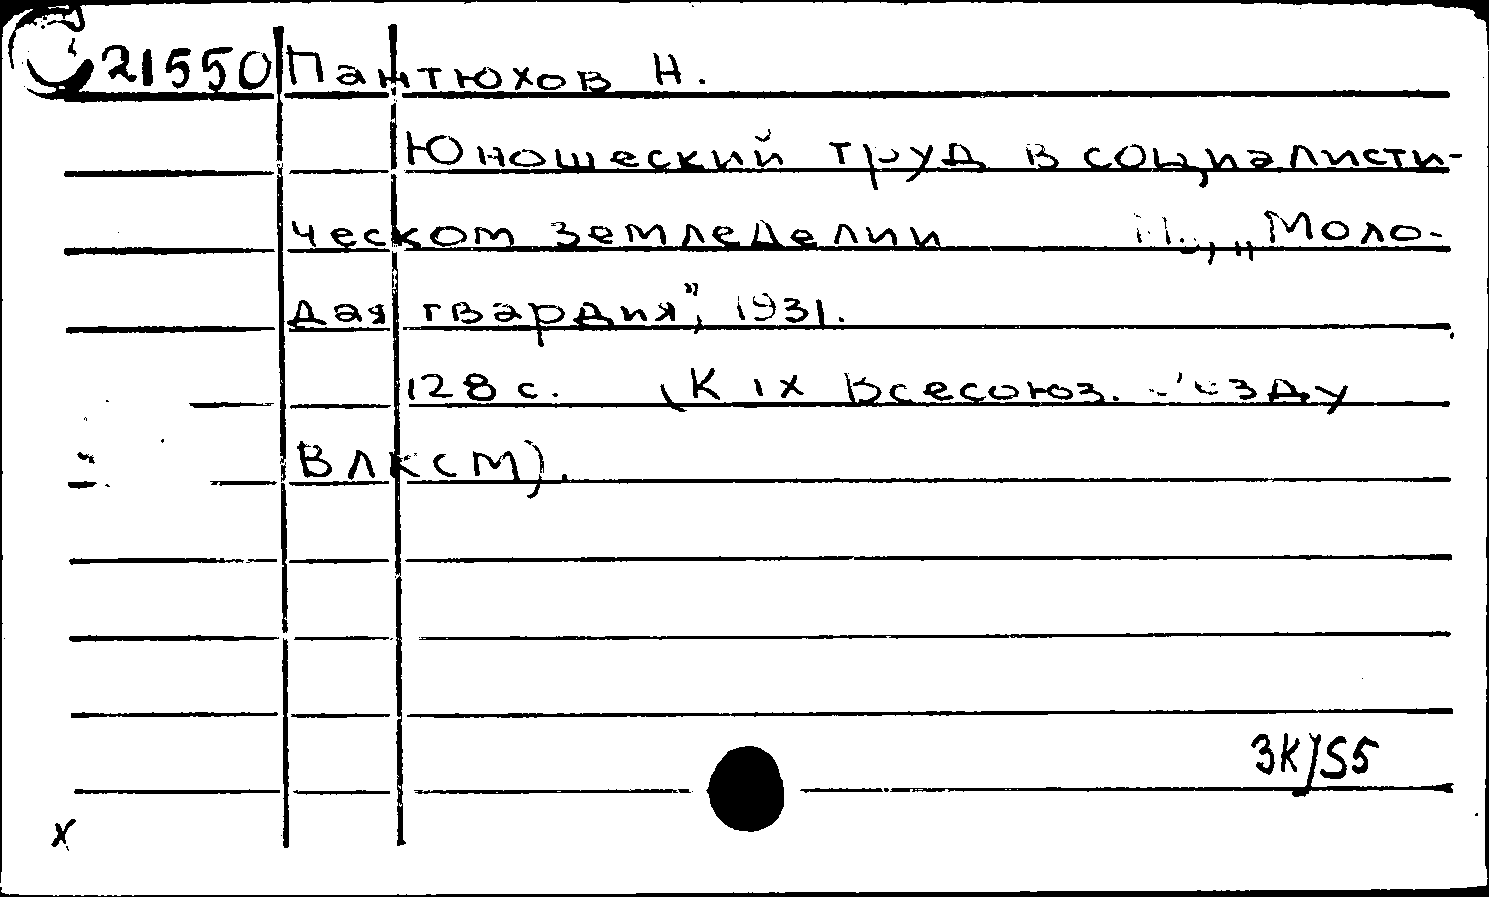 21550 Пантюхов Н.
Юношеский труд в социалисти-
ческом земледелии М., „Моло-
дая гвардия", 1931.
128 с. (К IX Всесоюз. съезду
ВЛКСМ).
3К/55
х